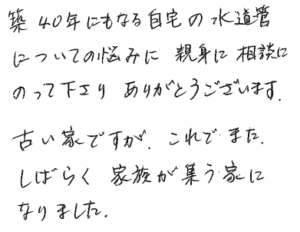 築40年にもなる自宅の水道管
についての悩みに 親身に 相談に
のって下さり ありがとうございます.
古い家ですが. これで また.
しばらく 家族が集う家に
なりました.